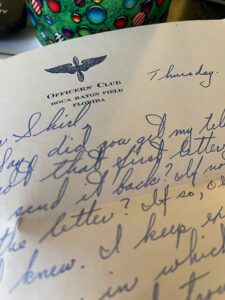 OFFICERS' CLUB
BOCA RATON FIELD
FLORIDA
Thursday.
Shirl
Say, did you get my
that first letter
send it back? If
the letter? If so,
knew. I keep
in which